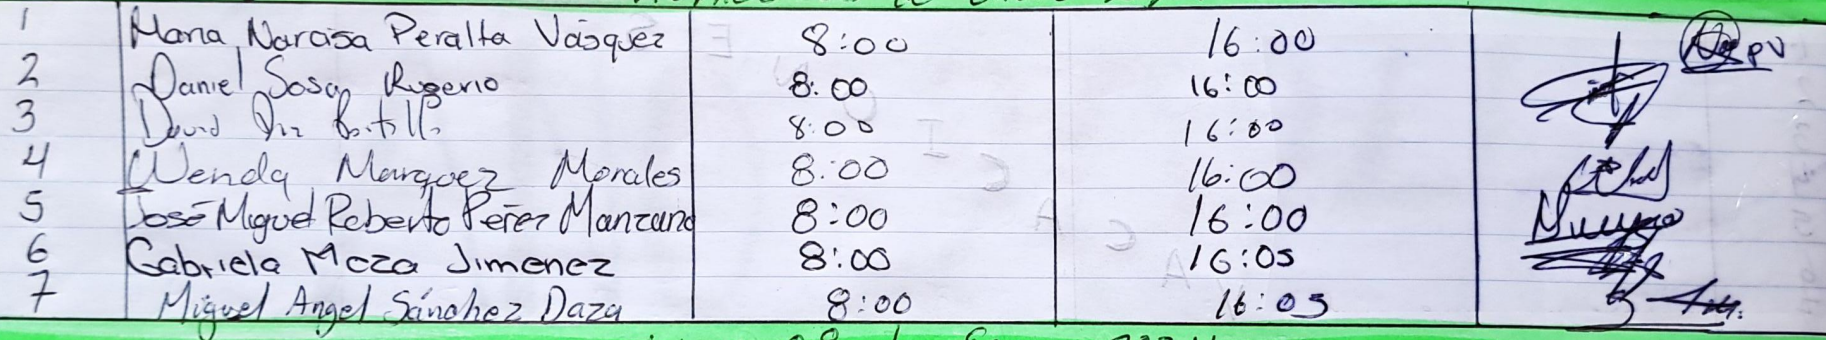 1 Maria Narcisa Peralta Vásquez 8:00 16:00 PV
2 Daniel Sosa Rugerio 8:00 16:00
3 David 8:00 16:00
4 Wenda Marquez Morales 8:00 16:00
5 José Miguel Roberto Perez Manzano 8:00 16:00
6 Gabriela Meza Jimenez 8:00 16:05
7 Miguel Angel Sánchez Daza 8:00 16:05